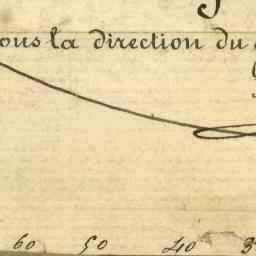 ous la direction du
60 50 40 3